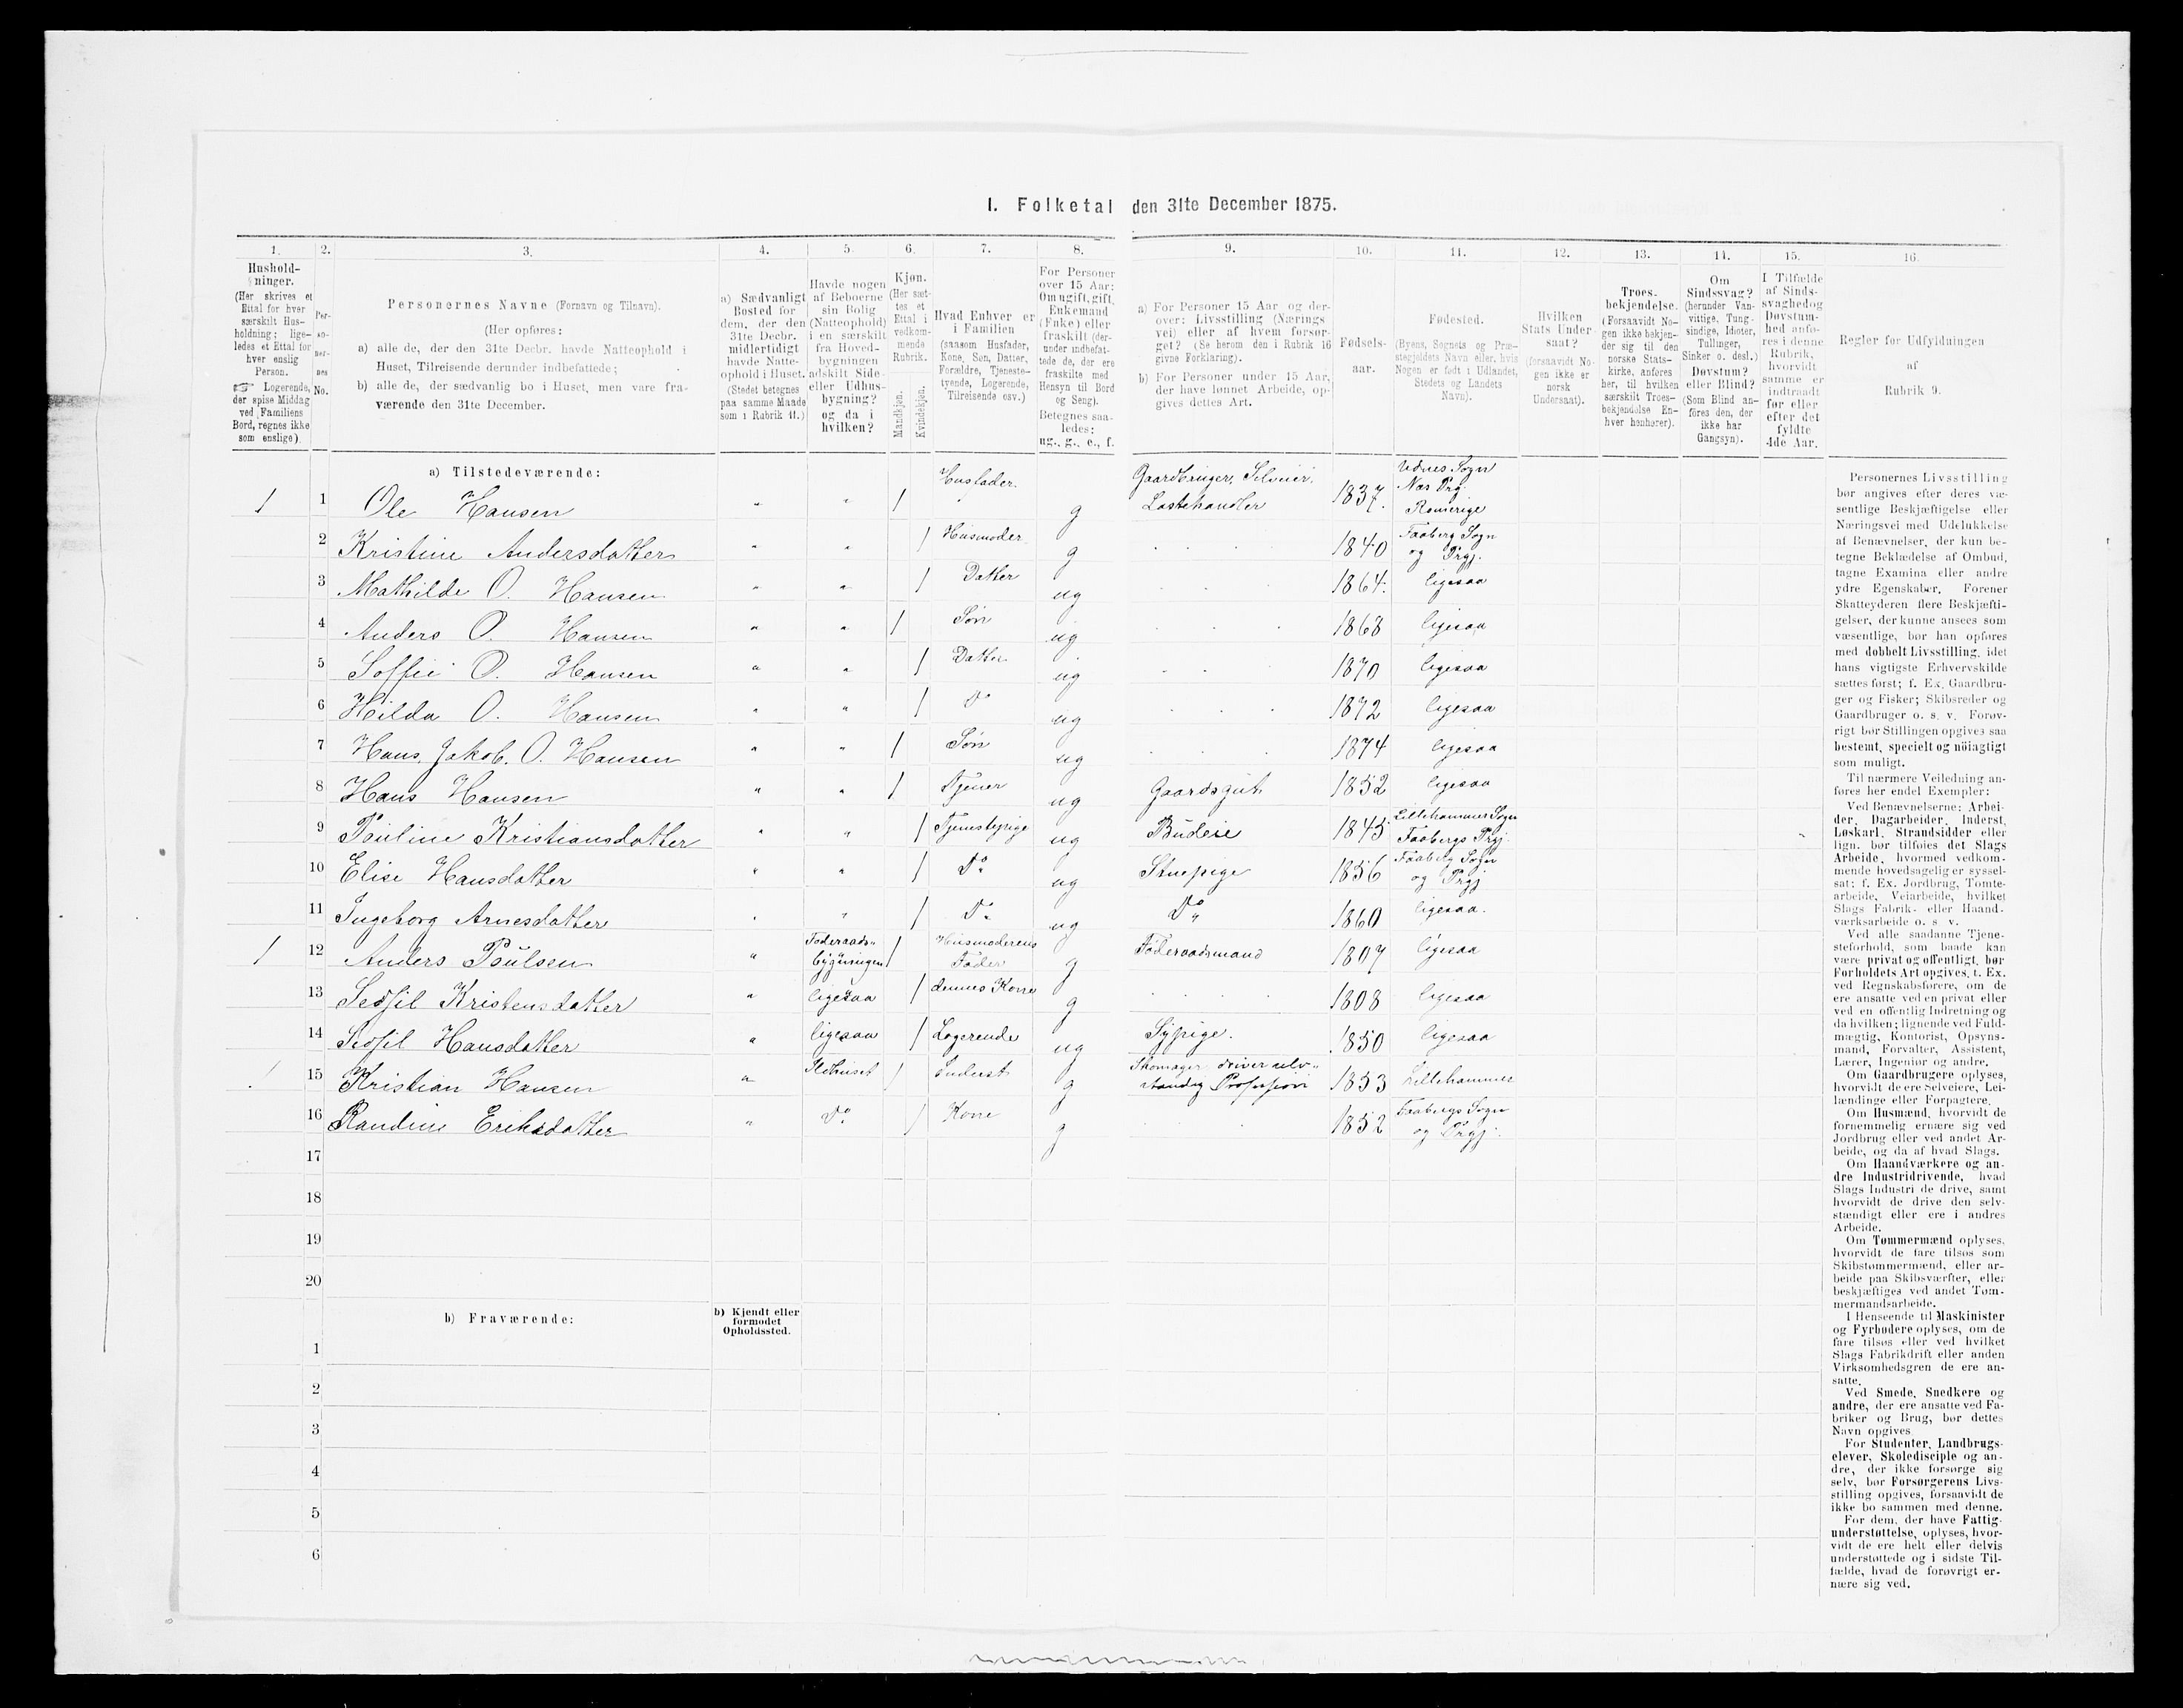 I. Folketal den 31te December 1875.
1. 2. 3. 4. 5. 6. 7. 8. 9. 10. 11. 12. 13. 14. 15. 16.
Hushold-
ninger.
(Her skrives et
Ettal for hver
særskilt Hus-
holdning; lige-
ledes et Ettal for
hver enslig
Person.
Logerende,
der spise Middag
ved Familiens
Bord, regnes ikke
som enslige).
Per-
so-
ner-
nes
No.
Personernes Navne (Fornavn og Tilnavn).
(Her opføres:
a) alle de, der den 31te Decbr. havde Natteophold i
Huset, Tilreisende derunder indbefattede;
b) alle de, der sædvanlig bo i Huset, men vare fra-
værende den 31te December.
a) Sædvanligt
Bosted for
dem, der den
31te Decbr.
midlertidigt
havde Natte-
ophold i Huset.
(Stedet betegnes
paa samme Maade
som i Rubrik 11.)
Havde nogen
af Beboerne
sin Bolig
(Natteophold)
i en særskilt
fra Hoved-
bygningen
adskilt Side-
eller Udhus-
bygning?
og da i
hvilken?
Kjøn.
(Her sæt-
tes et
Ettal i
vedkom-
mende
Rubrik.
Mandkjøn.
Kvindekjøn.
Hvad Enhver er
i Familien
(saasom Husfader,
Kone, Søn, Datter,
Forældre, Tjeneste-
tyende, Logerende,
Tilreisende osv.)
For Personer
over 15 Aar:
Om ugift, gift,
Enkemand
(Enke) eller
fraskilt (der-
under indbefat-
tede de, der ere
fraskilte med
Hensyn til Bord
og Seng).
Betegnes saa-
ledes:
ug., g., e., f.
a) For Personer 15 Aar og der-
over: Livsstilling (Nærings-
vei) eller af hvem forsør-
get? (Se herom den i Rubrik 16
givne Forklaring).
b) For Personer under 15 Aar,
der have lønnet Arbeide, op-
gives dettes Art.
Fødsels-
aar.
Fødested.
(Byens, Sognets og Præ-
stegjeldets Navn eller, hvis
Nogen er født i Udlandet,
Stedets og Landets
Navn).
Hvilken
Stats Under-
saat?
(forsaavidt No-
gen ikke er
norsk
Undersaat).
Troes-
bekjendelse.
(Forsaavidt No-
gen ikke bekjen-
der sig til den
norske Stats-
kirke, anføres
her, til hvilken
særskilt Troes-
bekjendelse En-
hver henhører).
Om
Sindssvag?
(herunder Van-
vittige, Tung-
sindige, Idioter,
Tullinger,
Sinker o. desl.)
Døvstum?
eller Blind?
(Som Blind an-
føres den, der
ikke har
Gangsyn).
I Tilfælde
af Sinds-
svaghed og
Døvstum-
hed anfø-
res i denne
Rubrik,
hvorvidt
samme er
indtraadt
før eller
efter det
fyldte
4de Aar.
Regler for Udfyldningen
af
Rubrik 9.
a) Tilstedeværende:
1 1 Ole Hansen " " 1 Husfader g Gaardbruger, Selveier, Lastehandler 1837. Udnes Sogn Næs Prg. Romerige
2 Kristine Andersdatter " " 1 Husmoder g 1840 Faaberg Sogn og Prgj.
3 Mathilde O. Hansen " " 1 Datter ug 1864. ligesaa
4 Anders O. Hansen " " 1 Søn ug 1868 ligesaa
5 Soffie O. Hansen " " 1 Datter ug 1870 ligesaa
6 Hilda O. Hansen " " 1 Do ug 1872 ligesaa
7 Hans Jakob. O. Hansen " " 1 Søn ug 1874 ligesaa
8 Hans Hansen " " 1 Tjener ug Gaardsgut 1852 ligesaa
9 Pauline Kristiansdatter " " 1 Tjenestepige ug Budeie 1845 Lillehammer Sogn Faabergs Prgj.
10 Elise Hansdatter " " 1 Do ug Stuepige 1856 Faaberg Sogn og Prgj
11 Ingeborg Arnesdatter " " 1 Do ug Do 1860 ligesaa.
1 12 Anders Poulsen " Føderaads- bygningen 1 Husmoderens Fader g Føderaadsmand 1807 ligesaa
13 Sedsil Kristensdatter " ligesaa 1 dennes Kone g 1808 ligesaa
14 Sedsil Hansdatter " ligesaa 1 Logerende ug Sypige. 1850 ligesaa
1 15 Kristian Hansen " Ildhuset 1 Inderst g Skomager driver selv- stændig Profession 1853 Lillehammer
16 Randine Eriksdatter " Do 1 Kone g 1852 Faabergs Sogn og Prgj.
17
18
19
20
b) Fraværende:
b) Kjendt eller
formodet
Opholdssted.
1
2
3
4
5
6
Personernes Livsstilling
bør angives efter deres væ-
sentlige Beskjæftigelse eller
Næringsvei med Udelukkelse
af Benævnelser, der kun be-
tegne Beklædelse af Ombud,
tagne Examina eller andre
ydre Egenskaber. Forener
Skatteyderen flere Beskjæfti-
gelser, der kunne ansees som
væsentlige, bør han opføres
med dobbelt Livsstilling, idet
hans vigtigste Erhvervskilde
sættes først; f. Ex. Gaardbru-
ger og Fisker; Skibsreder og
Gaardbruger o. s. v. Forøv-
rigt bør Stillingen opgives saa
bestemt, specielt og nöiagtigt
som muligt.
Til nærmere Veiledning an-
føres her endel Exempler:
Ved Benævnelserne: Arbei-
der, Dagarbeider, Inderst,
Løskarl, Strandsidder eller
lign. bør tilføies det Slags
Arbeide, hvormed vedkom-
mende hovedsagelig er syssel-
sat; f. Ex. Jordbrug, Tomte-
arbeide, Veiarbeide, hvilket
Slags Fabrik- eller Haand-
værksarbeide o. s. v.
Ved alle saadanne Tjene-
steforhold, som baade kan
være privat og offentligt, bør
Forholdets Art opgives, t. Ex.
ved Regnskabsførere, om de
ere ansatte ved en privat eller
ved en offentlig Indretning og
da hvilken; lignende ved Fuld-
mægtig, Kontorist, Opsyns-
mand, Forvalter, Assistent,
Lærer, Ingeniør og andre.
Om Gaardbrugere oplyses,
hvorvidt de ere Selveiere, Lei-
lændinge eller Forpagtere.
Om Husmænd, hvorvidt de
fornemmelig ernære sig ved
Jordbrug eller ved andet Ar-
beide, og da af hvad Slags.
Om Haandværkere og an-
dre Industridrivende, hvad
Slags Industri de drive, samt
hvorvidt de drive den selv-
stændigt eller ere i andres
Arbeide.
Om Tømmermænd oplyses,
hvorvidt de fare tilsøs som
Skibstømmermænd, eller ar-
beide paa Skibsværfter, eller
beskjæftiges ved andet Tøm-
mermandsarbeide.
I Henseende til Maskinister
og Fyrbødere oplyses, om de
fare tilsøs eller ved hvilket
Slags Fabrikdrift eller anden
Virksomhedsgren de ere an-
satte.
Ved Smede, Snedkere og
andre, der ere ansatte ved Fa-
briker og Brug, bør dettes
Navn opgives.
For Studenter, Landbrugs-
elever, Skoledisciple og an-
dre, der ikke forsørge sig
selv, bør Forsørgerens Livs-
stilling opgives, forsaavidt de
ikke bo sammen med denne.
For dem, der have Fattig-
understøttelse, oplyses, hvor-
vidt de ere helt eller delvis
understøttede og i sidste Til-
fælde, hvad de forøvrigt er-
nære sig ved.